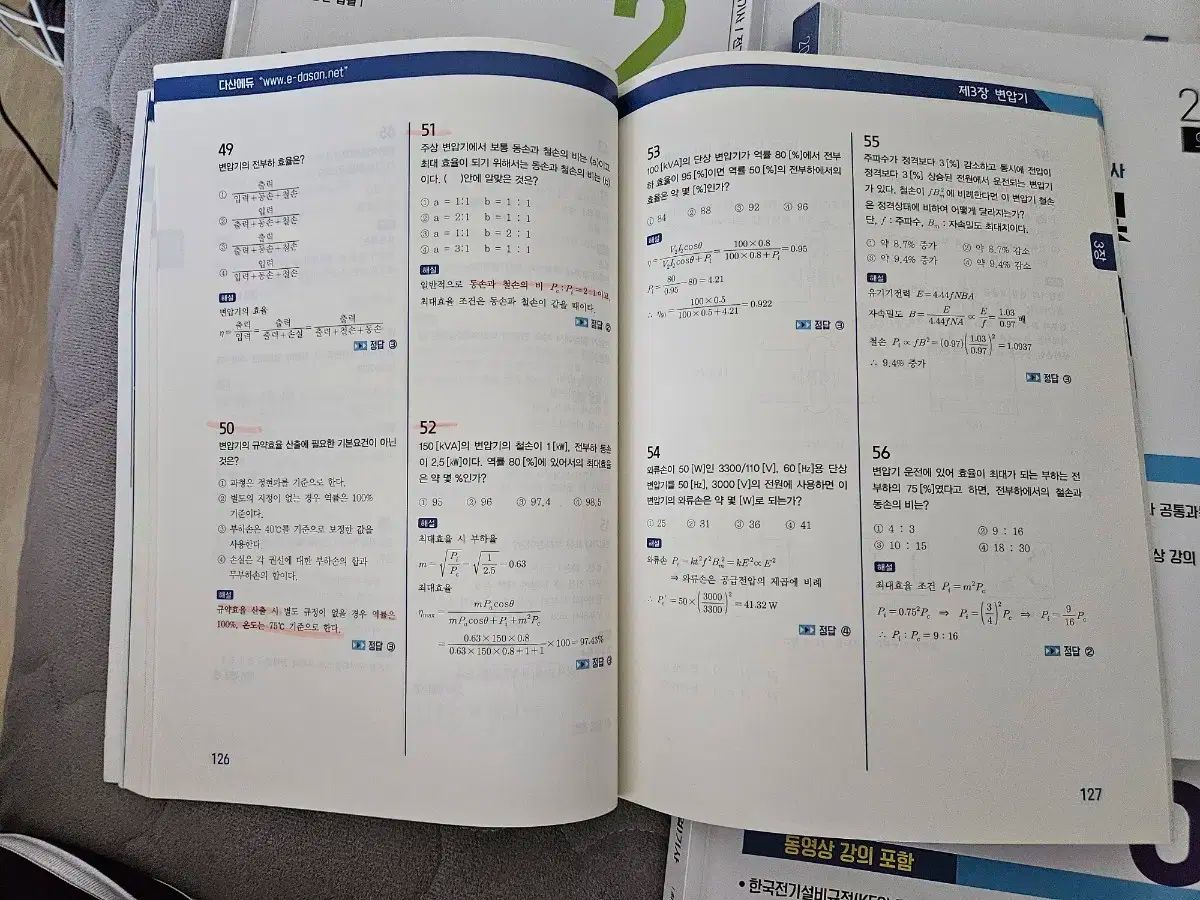 다산에듀 "www.e-dasan.net"
49
변압기의 전부하 효율은?
① 출력 / 입력+동손+철손
② 입력 / 출력+동손+철손
③ 출력 / 출력+동손+철손
④ 입력 / 입력+동손+철손
해설
변압기의 효율
η= 출력/입력 = 출력/출력+손실 = 출력/출력+철손+동손
정답 ③
50
변압기의 규약효율 산출에 필요한 기본요건이 아닌
것은?
① 파형은 정현파를 기준으로 한다.
② 별도의 지정이 없는 경우 역률은 100%
기준이다.
③ 부하손은 40℃를 기준으로 보정한 값을
사용한다.
④ 손실은 각 권선에 대한 부하손의 합과
무부하손의 합이다.
해설
규약효율 산출 시 별도 규정이 없을 경우 역률은
100%, 온도는 75℃ 기준으로 한다.
정답 ③
126
51
주상 변압기에서 보통 동손과 철손의 비는 (a)이고
최대 효율이 되기 위해서는 동손과 철손의 비는 (b)
이다. ( )안에 알맞은 것은?
① a = 1:1 b = 1 : 1
② a = 2:1 b = 1 : 1
③ a = 1:1 b = 2 : 1
④ a = 3:1 b = 1 : 1
해설
일반적으로 동손과 철손의 비 Pc : Pi = 2 : 1이고,
최대효율 조건은 동손과 철손이 같을 때이다.
정답 ②
52
150[kVA]의 변압기의 철손이 1[㎾], 전부하 동손
이 2.5[㎾]이다. 역률 80[%]에 있어서의 최대효율
은 약 몇 %인가?
① 95 ② 96 ③ 97.4 ④ 98.5
해설
최대효율 시 부하율
m=√(Pi/Pc)=√(1/2.5)=0.63
최대효율
ηmax= mPacosθ / mPacosθ+Pi+m²Pc
= 0.63×150×0.8 / 0.63×150×0.8+1+1 ×100=97.43%
정답 ③
제3장 변압기
53
100[kVA]의 단상 변압기가 역률 80[%]에서 전부
하 효율이 95[%]이면 역률 50[%]의 전부하에서의
효율은 약 몇 [%]인가?
① 84 ② 88 ③ 92 ④ 96
해설
η= V₂I₂cosθ / V₂I₂cosθ+Pl = 100×0.8 / 100×0.8+Pl =0.95
Pl= 80/0.95 -80=4.21
∴ η50= 100×0.5 / 100×0.5+4.21 =0.922
정답 ③
54
와류손이 50[W]인 3300/110[V], 60[Hz]용 단상
변압기를 50[Hz], 3000[V]의 전원에 사용하면 이
변압기의 와류손은 약 몇 [W]로 되는가?
① 25 ② 31 ③ 36 ④ 41
해설
와류손 Pe=kt²f²Bm²=kE²∝E²
⇒ 와류손은 공급전압의 제곱에 비례
∴ Pe′=50×(3000/3300)²=41.32W
정답 ④
55
주파수가 정격보다 3[%] 감소하고 동시에 전압이
정격보다 3[%] 상승된 전원에서 운전되는 변압기
가 있다. 철손이 fBm²에 비례한다면 이 변압기 철손
은 정격상태에 비하여 어떻게 달라지는가?
단, f : 주파수, Bm : 자속밀도 최대치이다.
① 약 8.7% 증가 ② 약 8.7% 감소
③ 약 9.4% 증가 ④ 약 9.4% 감소
해설
유기기전력 E=4.44fNBA
자속밀도 B= E/4.44fNA ∝ E/f = 1.03/0.97 배
철손 Pi∝fB²=(0.97)(1.03/0.97)²=1.0937
∴ 9.4% 증가
정답 ③
56
변압기 운전에 있어 효율이 최대가 되는 부하는 전
부하의 75[%]였다고 하면, 전부하에서의 철손과
동손의 비는?
① 4 : 3 ② 9 : 16
③ 10 : 15 ④ 18 : 30
해설
최대효율 조건 Pi=m²Pc
Pi=0.75²Pc ⇒ Pi=(3/4)²Pc ⇒ Pi=9/16 Pc
∴ Pi : Pc=9 : 16
정답 ②
3장
127
2
동영상 강의 포함